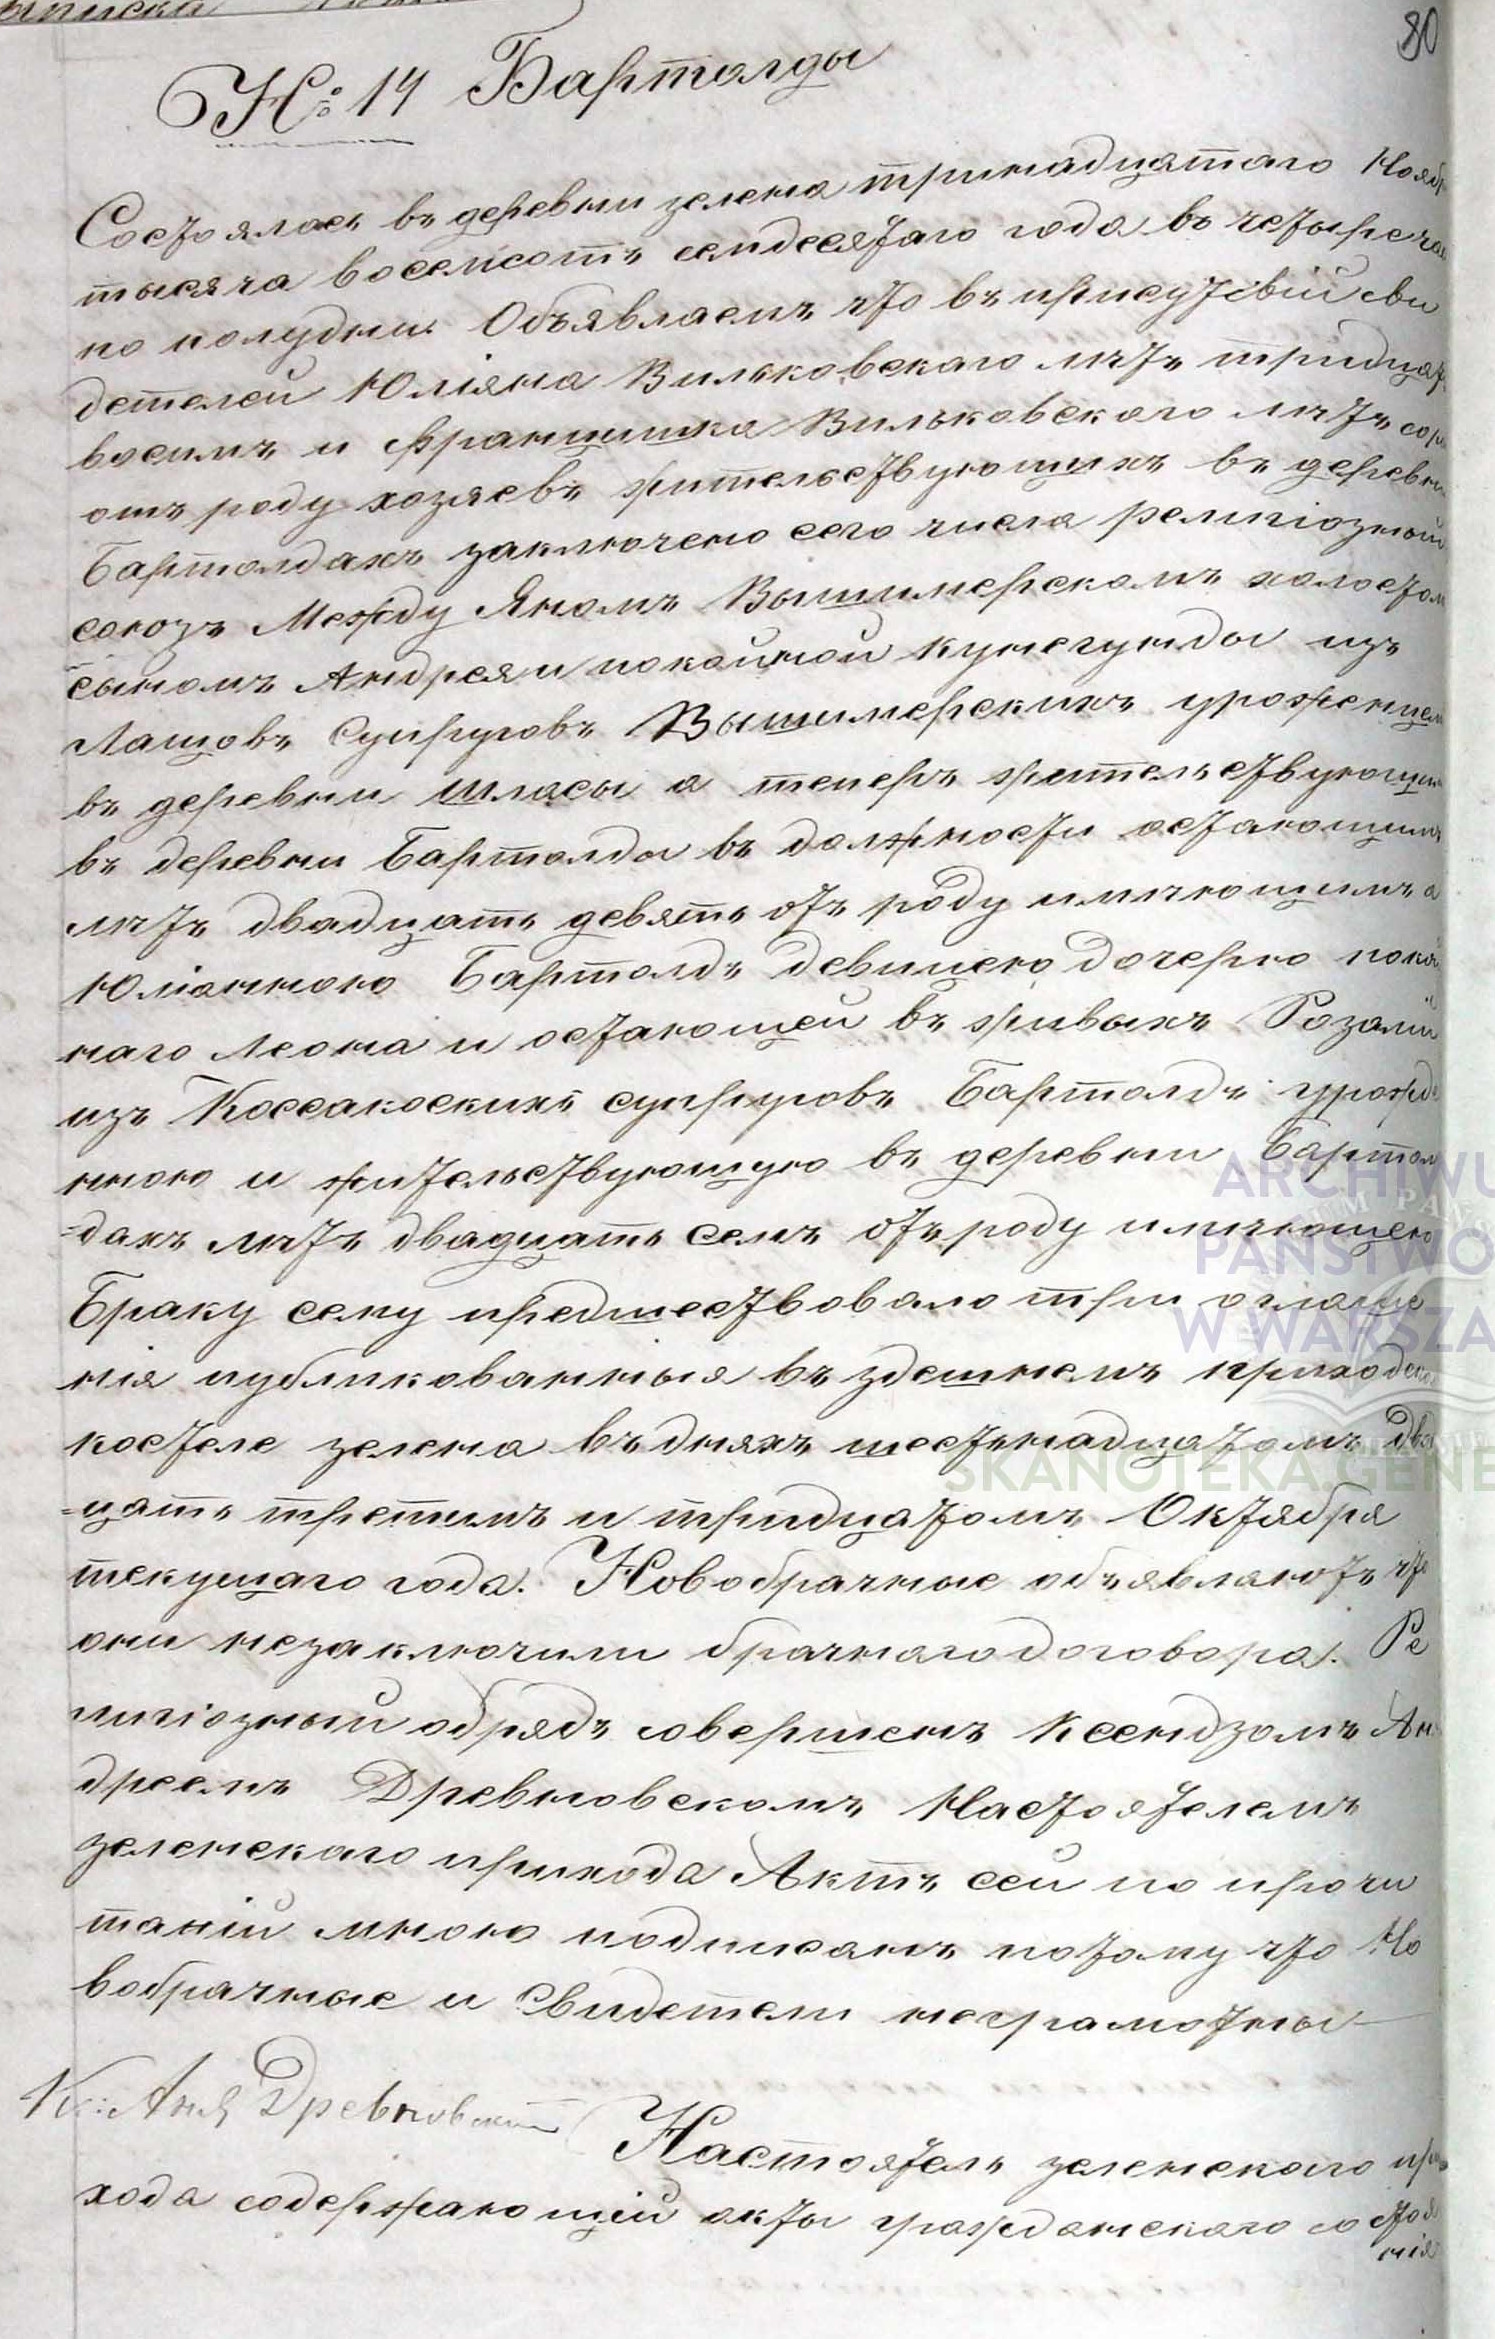 80
№ 14 Бартолды
Состоялось въ деревни зелена тринадцатаго Ноябр
тысяча восемсотъ семдесятаго года въ четыре ча
по полудни. Объявляемъ что въ присутсвій сви
детелей Юліяна Вильковскаго лѣтъ тридцат
восимъ и Францишка Вильковского лѣтъ сор
отъ роду хозяевъ жительствующихъ въ деревни
Бартолдахъ заключено сего числа религіозный
союзъ Между Яномъ Вышимерскомъ холостом
сыномъ Андрея и покойной Кунегунды изъ
Лащовъ Супруговъ Вышимерскихъ уроженцем
въ деревни Шласы а теперъ жительствующим
въ деревни Бартолды въ должности остающимъ
лѣтъ двадцать девять отъ роду имѣющимъ а
Юліанною Бартолдъ девицею дочерю покой
наго Леона и остающей въ живыхъ Розалій
изъ Коссакоскихъ супруговъ Бартолдъ урожде
нною и жительствующую въ деревни Бартол
=дахъ лѣтъ двадцать семъ отъ роду имѣющею
Браку сему предшествовало три оглаше
нія публикованныя въ здешнемъ приходско
костеле зелена въ дняхъ шестьнадцатомъ два
=цать третимъ и тридцатомъ Октября
текущаго года. Новобрачные объявляютъ что
они незаключили брачнаго договора. Ре
лигіозный обрядъ совершенъ Ксендзомъ Ан
дреемъ Древновскомъ Настоятелемъ
зеленскаго прихода Актъ сей по прочи
таній мною подписанъ потому что Но
вобрачные и Свидетели неграмотны
К: Анд Древновскій Настоятель зеленскаго при
хода содержающій акты гражданскаго состоя
нія
ARCHIWU
PAŃSTWO
W WARSZA
SKANOTEKA.GENE